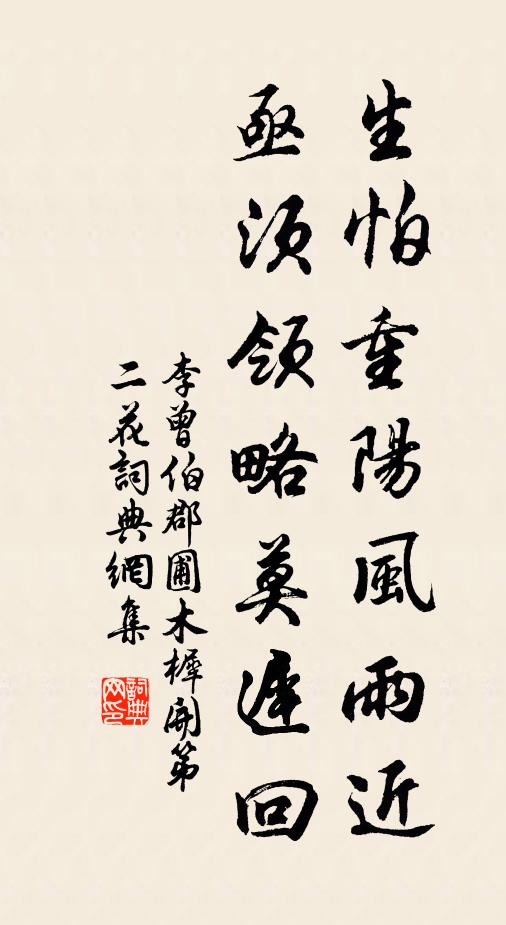 生怕重陽風雨近
亟須領略莫遲回
李曾伯郡圃木樨開第
二花詞典網集
詞典
网印